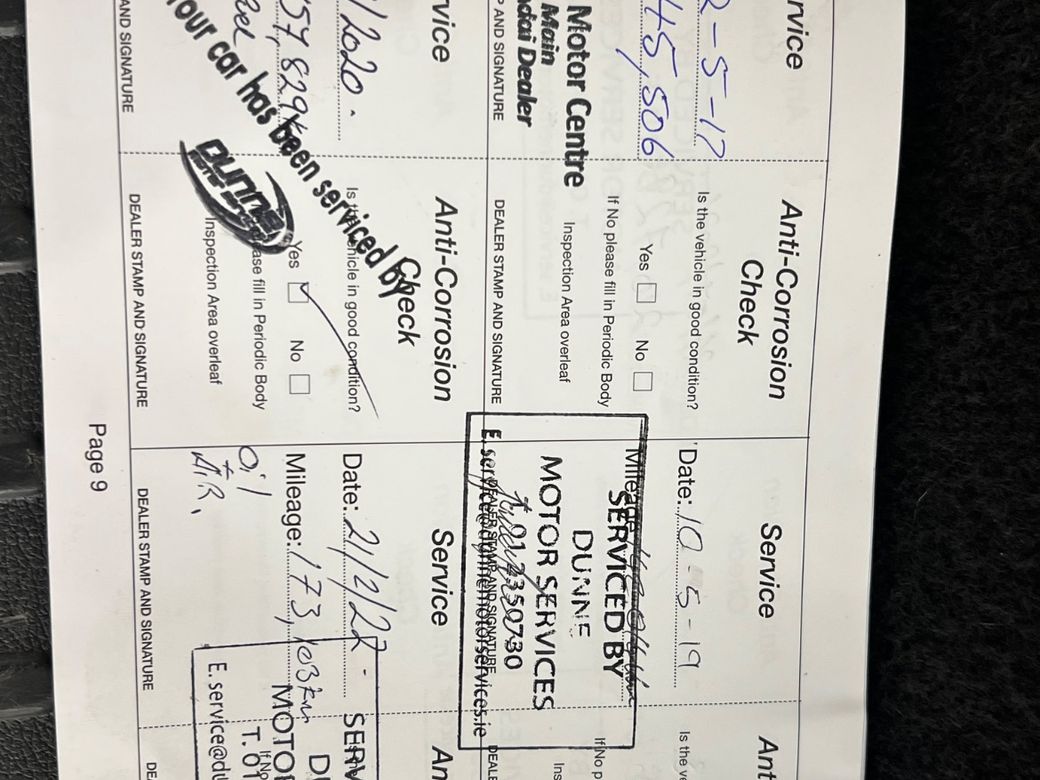 rvice
-5-17
45,506
Motor Centre
Main
dai Dealer
P AND SIGNATURE
Anti-Corrosion
Check
Is the vehicle in good condition?
Yes No
If No please fill in Periodic Body
Inspection Area overleaf
DEALER STAMP AND SIGNATURE
Service
Date: 10-5-19
Mileage:
SERVICED BY
DUNNE
MOTOR SERVICES
T. 01 2350730
E. service@dunnemotorservices.ie
DEALER STAMP AND SIGNATURE
Ant
Is the ve
If No p
Ins
DEALE
vice
/2020.
57,829
our car has been serviced by
Dunne
AND SIGNATURE
Anti-Corrosion
Check
Is the vehicle in good condition?
Yes No
ase fill in Periodic Body
Inspection Area overleaf
DEALER STAMP AND SIGNATURE
Service
Date: 21/2/22.
Mileage: 173,103km
Oil
+ AIR.
DEALER STAMP AND SIGNATURE
An
SERV
DU
MOTO
If No
T. 01
E. service@du
DE
Page 9